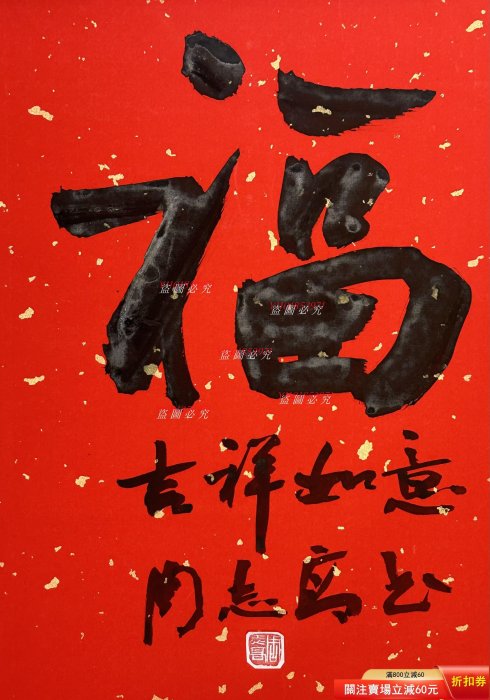 福
盜圖必究
盜圖必究
盜圖必究
盜圖必究
盜圖必究
吉祥如意
周志高书
滿800立減60
關注賣場立減60元
折扣券